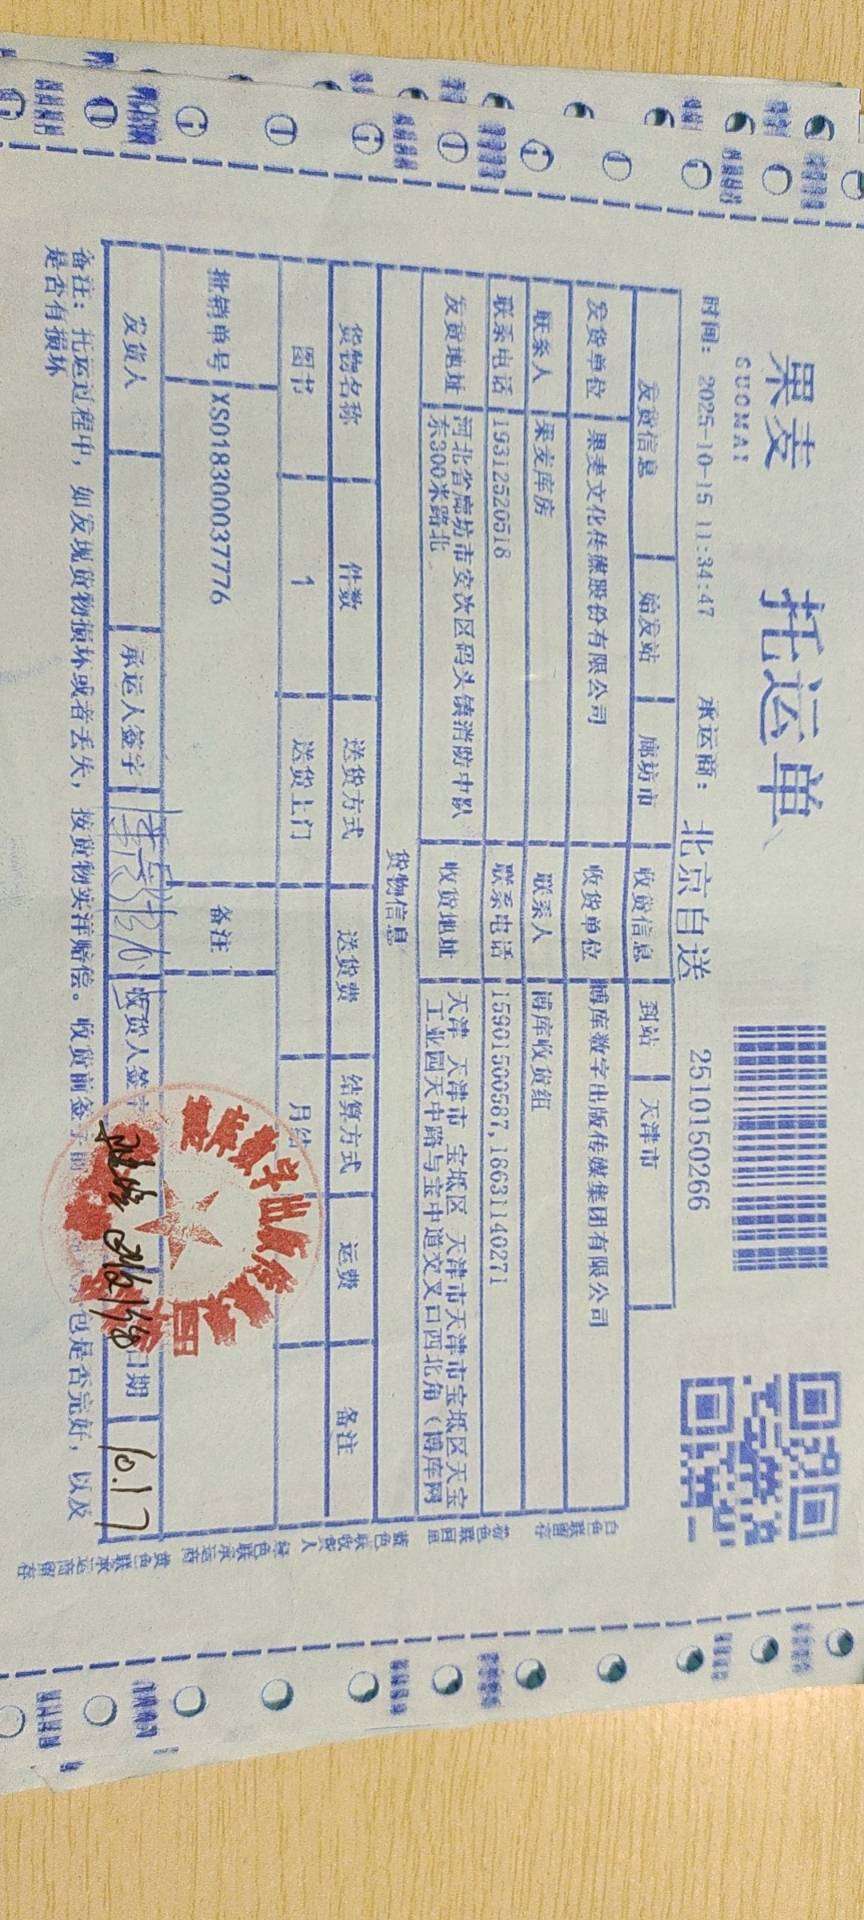 果麦
GUOMAI
托运单
时间: 2025-10-15 11:34:47 承运商: 北京自送 2510150266
发货信息 始发站 廊坊市 收货信息 到站 天津市
发货单位 果麦文化传媒股份有限公司 收货单位 博库数字出版传媒集团有限公司
联系人 果麦库房 联系人 博库收货组
联系电话 19312520518 联系电话 15901500587,18631140271
发货地址 河北省廊坊市安次区码头镇消防中队东300米路北 收货地址 天津 天津市 宝坻区 天津市天津市宝坻区天宝工业园天中路与宝中道交叉口西北角(博库网
货物信息
货物名称 件数 送货方式 送货费 结算方式 运费 备注
图书 1 送货上门 月结
批销单号 XS018300037776 备注
发货人 承运人签字 收货人签字 日期 10.17
备注: 托运过程中, 如发现货物损坏或者丢失, 按货物实洋赔偿。收货前签字前 包是否完好, 以及
是否有损坏
白色联留存
蓝色联收货人
绿色联承运商
黄色联承运商留存